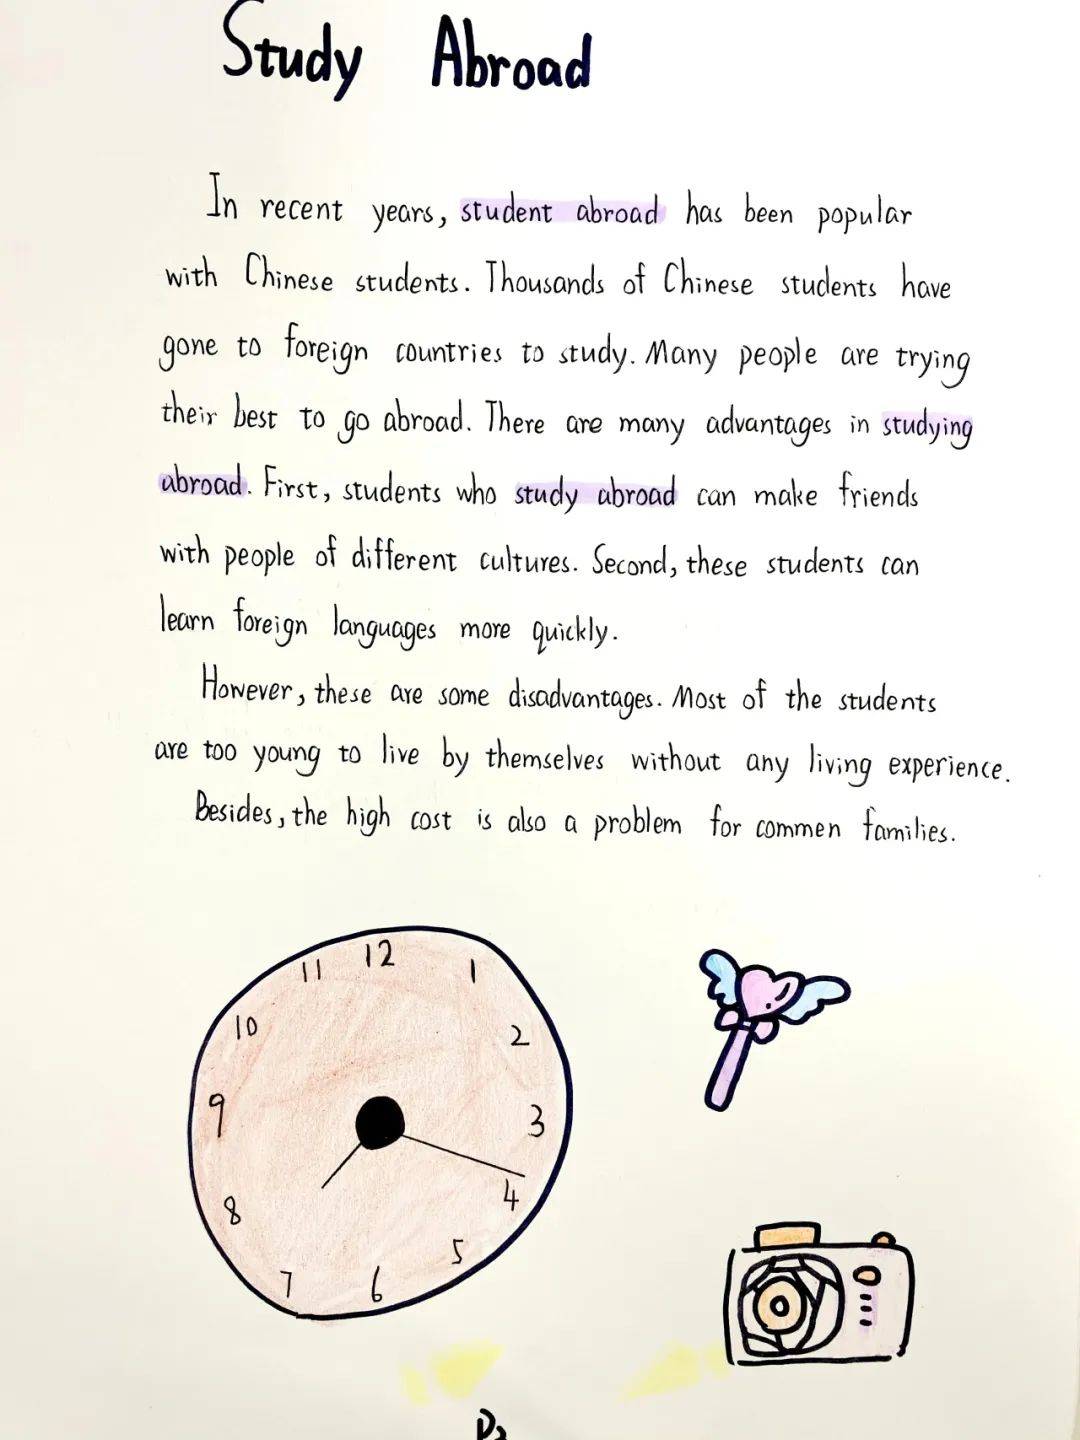 Study Abroad
In recent years, student abroad has been popular
with Chinese students. Thousands of Chinese students have
gone to foreign countries to study. Many people are trying
their best to go abroad. There are many advantages in studying
abroad. First, students who study abroad can make friends
with people of different cultures. Second, these students can
learn foreign languages more quickly.
However, these are some disadvantages. Most of the students
are too young to live by themselves without any living experience.
Besides, the high cost is also a problem for commen families.
12
11
1
10
2
9
3
8
4
7
5
6